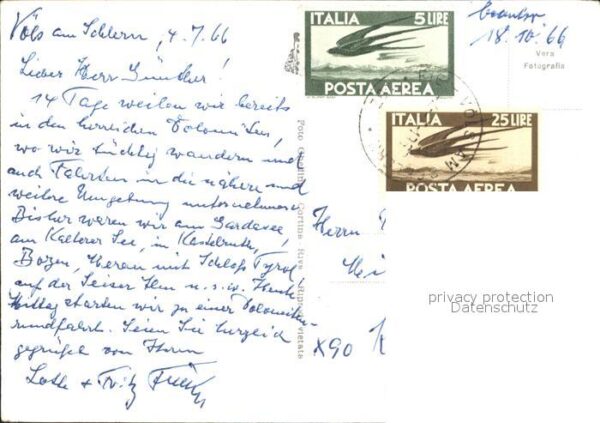 Völs am Schlern, 4.7.66
Lieber Herr Günther!
14 Tage weilen wir bereits
in den herrlichen Dolomiten,
wo wir tüchtig wandern und
auch Fahrten in die nähere und
weitere Umgebung unternehmen.
Bisher waren wir am Gardasee,
am Kalterer See, in Kastelruth,
Bozen, Meran mit Schloß Tyrol,
auf der Seiser Alm u.s.w. Heute
Mittag starten wir zu einer Dolomiten-
rundfahrt. Seien Sie herzlich
gegrüßet von Ihren
Lotte + Fritz
Foto Ghedina - Cortina - Rip. vietata
ITALIA 5 LIRE
POSTA AEREA
ITALIA 25 LIRE
POSTA AEREA
18.10.66
Vera
Fotografia
Herrn
X90
privacy protection
Datenschutz